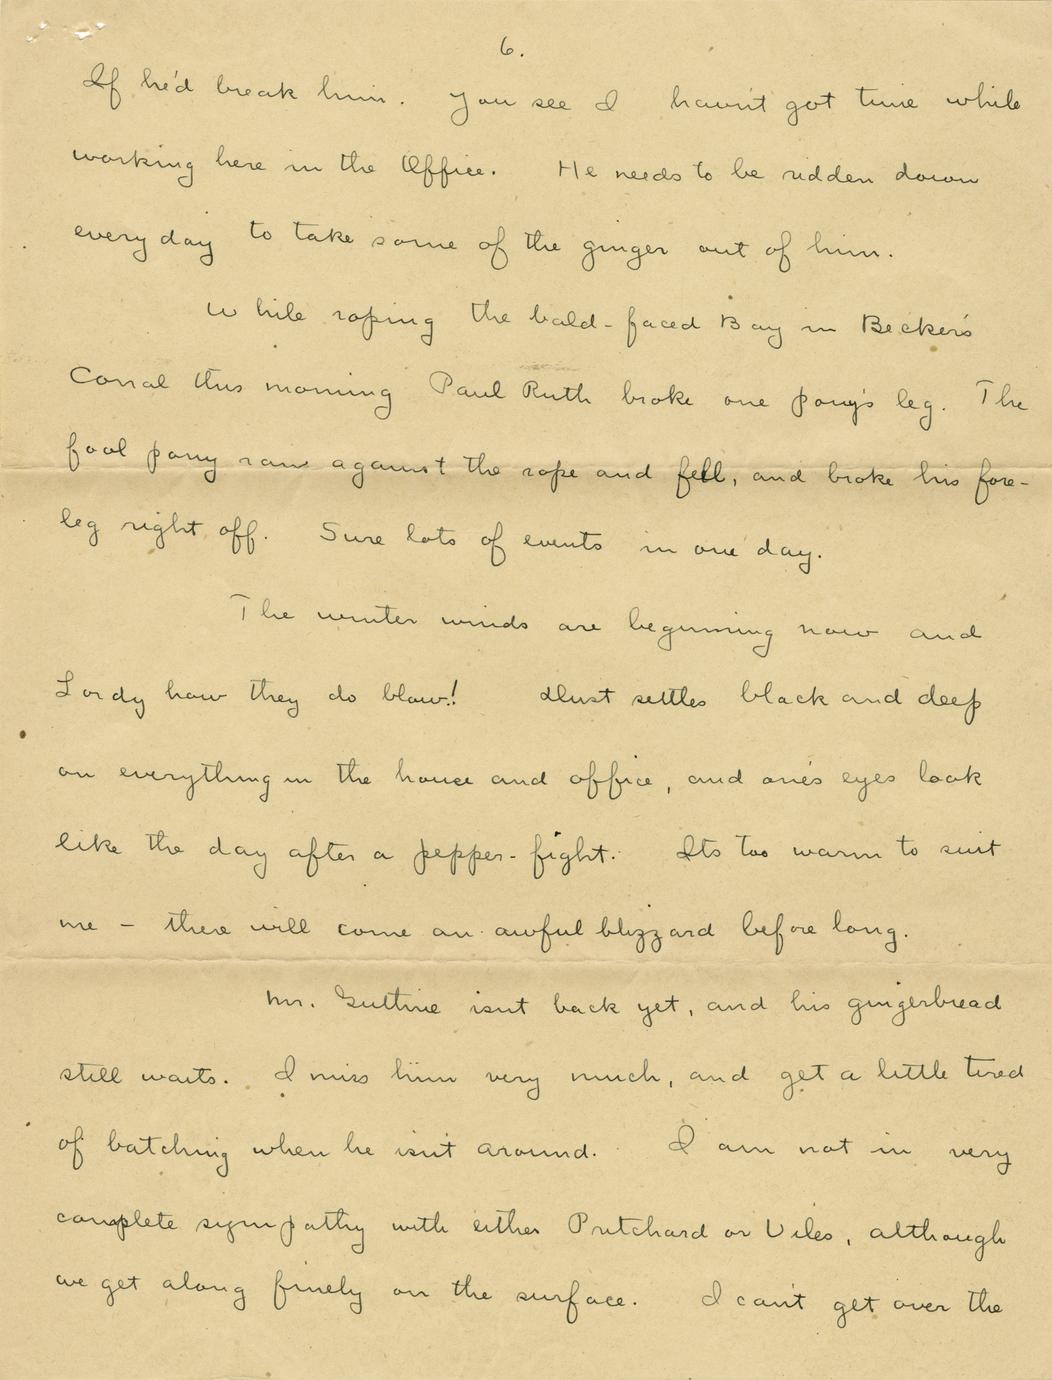 6.
If he'd break him. You see I havn't got time while
working here in the Office. He needs to be ridden down
every day to take some of the ginger out of him.
While roping the bald-faced Bay in Becker's
Corral this morning Paul Ruth broke one pony's leg. The
fool pony ran against the rope and fell, and broke his fore-
leg right off. Sure lots of events in one day.
The winter winds are beginning now and
Lordy how they do blow! Dust settles black and deep
on everything in the house and office, and one's eyes look
like the day after a pepper-fight. Its too warm to suit
me - there will come an awful blizzard before long.
Mr. Guthrie isn't back yet, and his gingerbread
still waits. I miss him very much, and get a little tired
of batching when he isn't around. I am not in very
complete sympathy with either Pritchard or Viles, although
we get along finely on the surface. I can't get over the